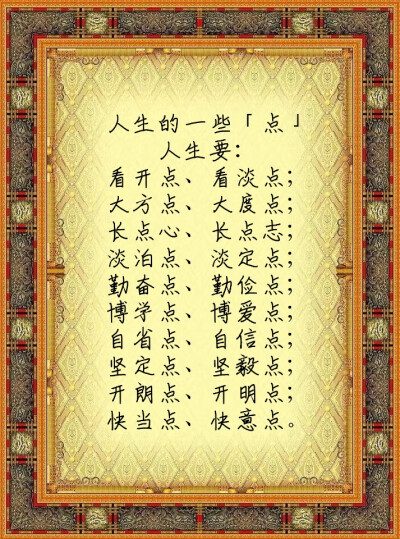 人生的一些「点」
人生要：
看开点、看淡点；
大方点、大度点；
长点心、长点志；
淡泊点、淡定点；
勤奋点、勤俭点；
博学点、博爱点；
自省点、自信点；
坚定点、坚毅点；
开朗点、开明点；
快当点、快意点。